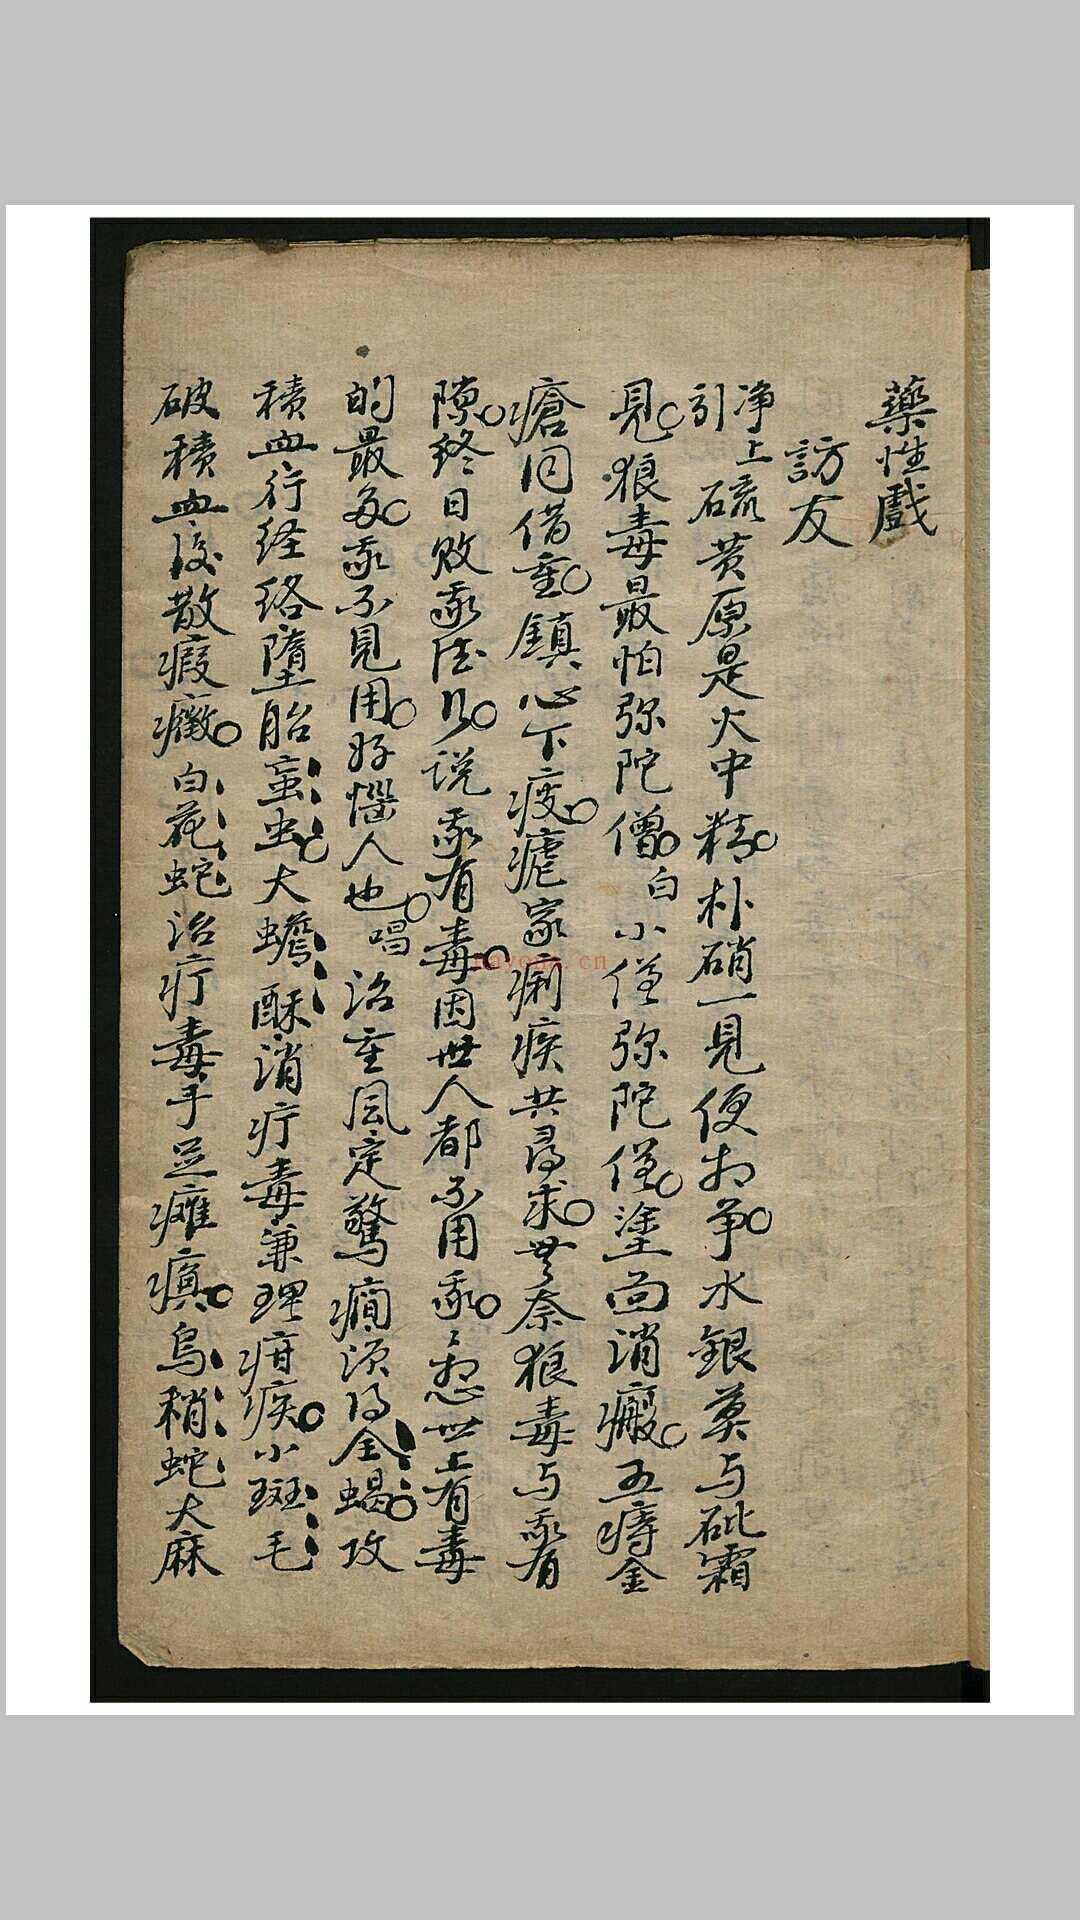 藥性戲
訪友
净上引 硫黃原是火中精 朴硝一見便相爭 水銀莫与砒霜
見 狼毒最怕弥陀僧 白 小僧弥陀僧 塗面消瘢 五痔金
瘡同借重 鎮心下痰 瘧家痢疾共尋求 無奈狼毒与我有
隙 終日敗我德行 说我有毒 因世人都不用我 我想世上有毒
的最多 我不見用 好惱人也 唱 治重風定驚癇須得全蝎 攻
積血行経络墮胎䖟虫 大蟾酥消疔毒兼理疳疾 小斑毛
破積血 散瘕癥 白花蛇治疔毒手足癱瘓 烏稍蛇大麻
nayona.cn